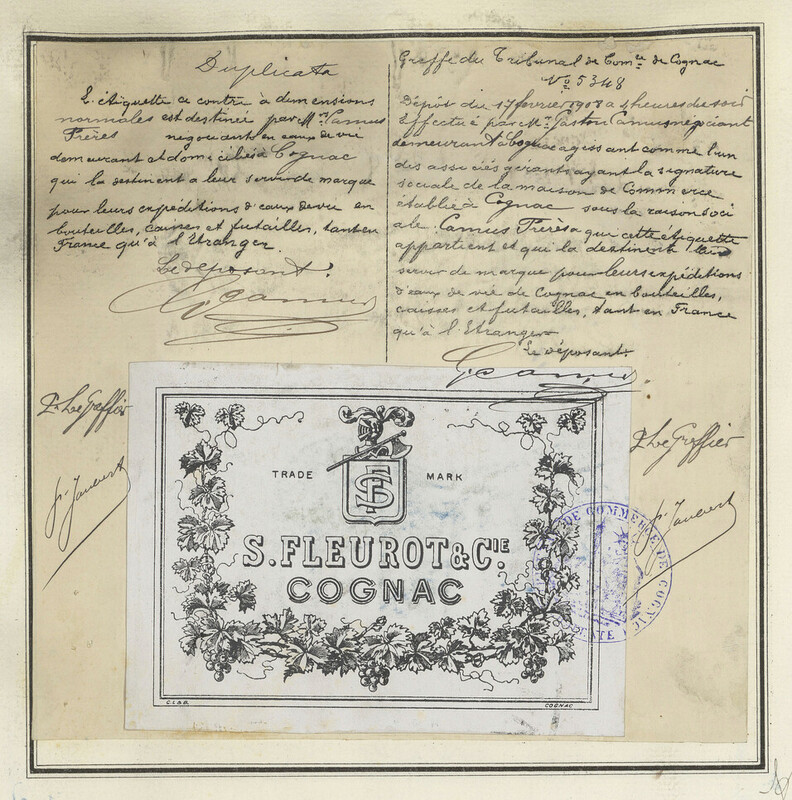 Duplicata
L'étiquette ci contre à dimensions
normales est destinée par Mrs Camus
Frères négociants en eaux de vie
demeurant et domiciliés à Cognac
qui la destinent a leur servir de marque
pour leurs expéditions d'eaux de vie en
bouteilles, caisses et futailles, tant en
France qu'à l'Etranger.
Le déposant.
G Camus
Greffe du Tribunal de Comce de Cognac
No 5348
Dépôt du 17 février 1908 a 4 heures du soir
Effectué par Mr Gaston Camus négociant
demeurant à Cognac agissant comme l'un
des associés gérants ayant la signature
sociale de la maison de Commerce
établie à Cognac sous la raison soci
ale. Camus Frères a qui cette étiquette
appartient et qui la destinent leur
servir de marque pour leurs expéditions
d'eaux de vie de Cognac en bouteilles,
caisses et futailles, tant en France
qu'à l'Etranger
Le déposant.
G Camus
P. Le Greffier
P. Le Greffier
TRADE MARK
SF
S. FLEUROT & CIE.
COGNAC
COGNAC
DE COMMERCE DE COGNAC